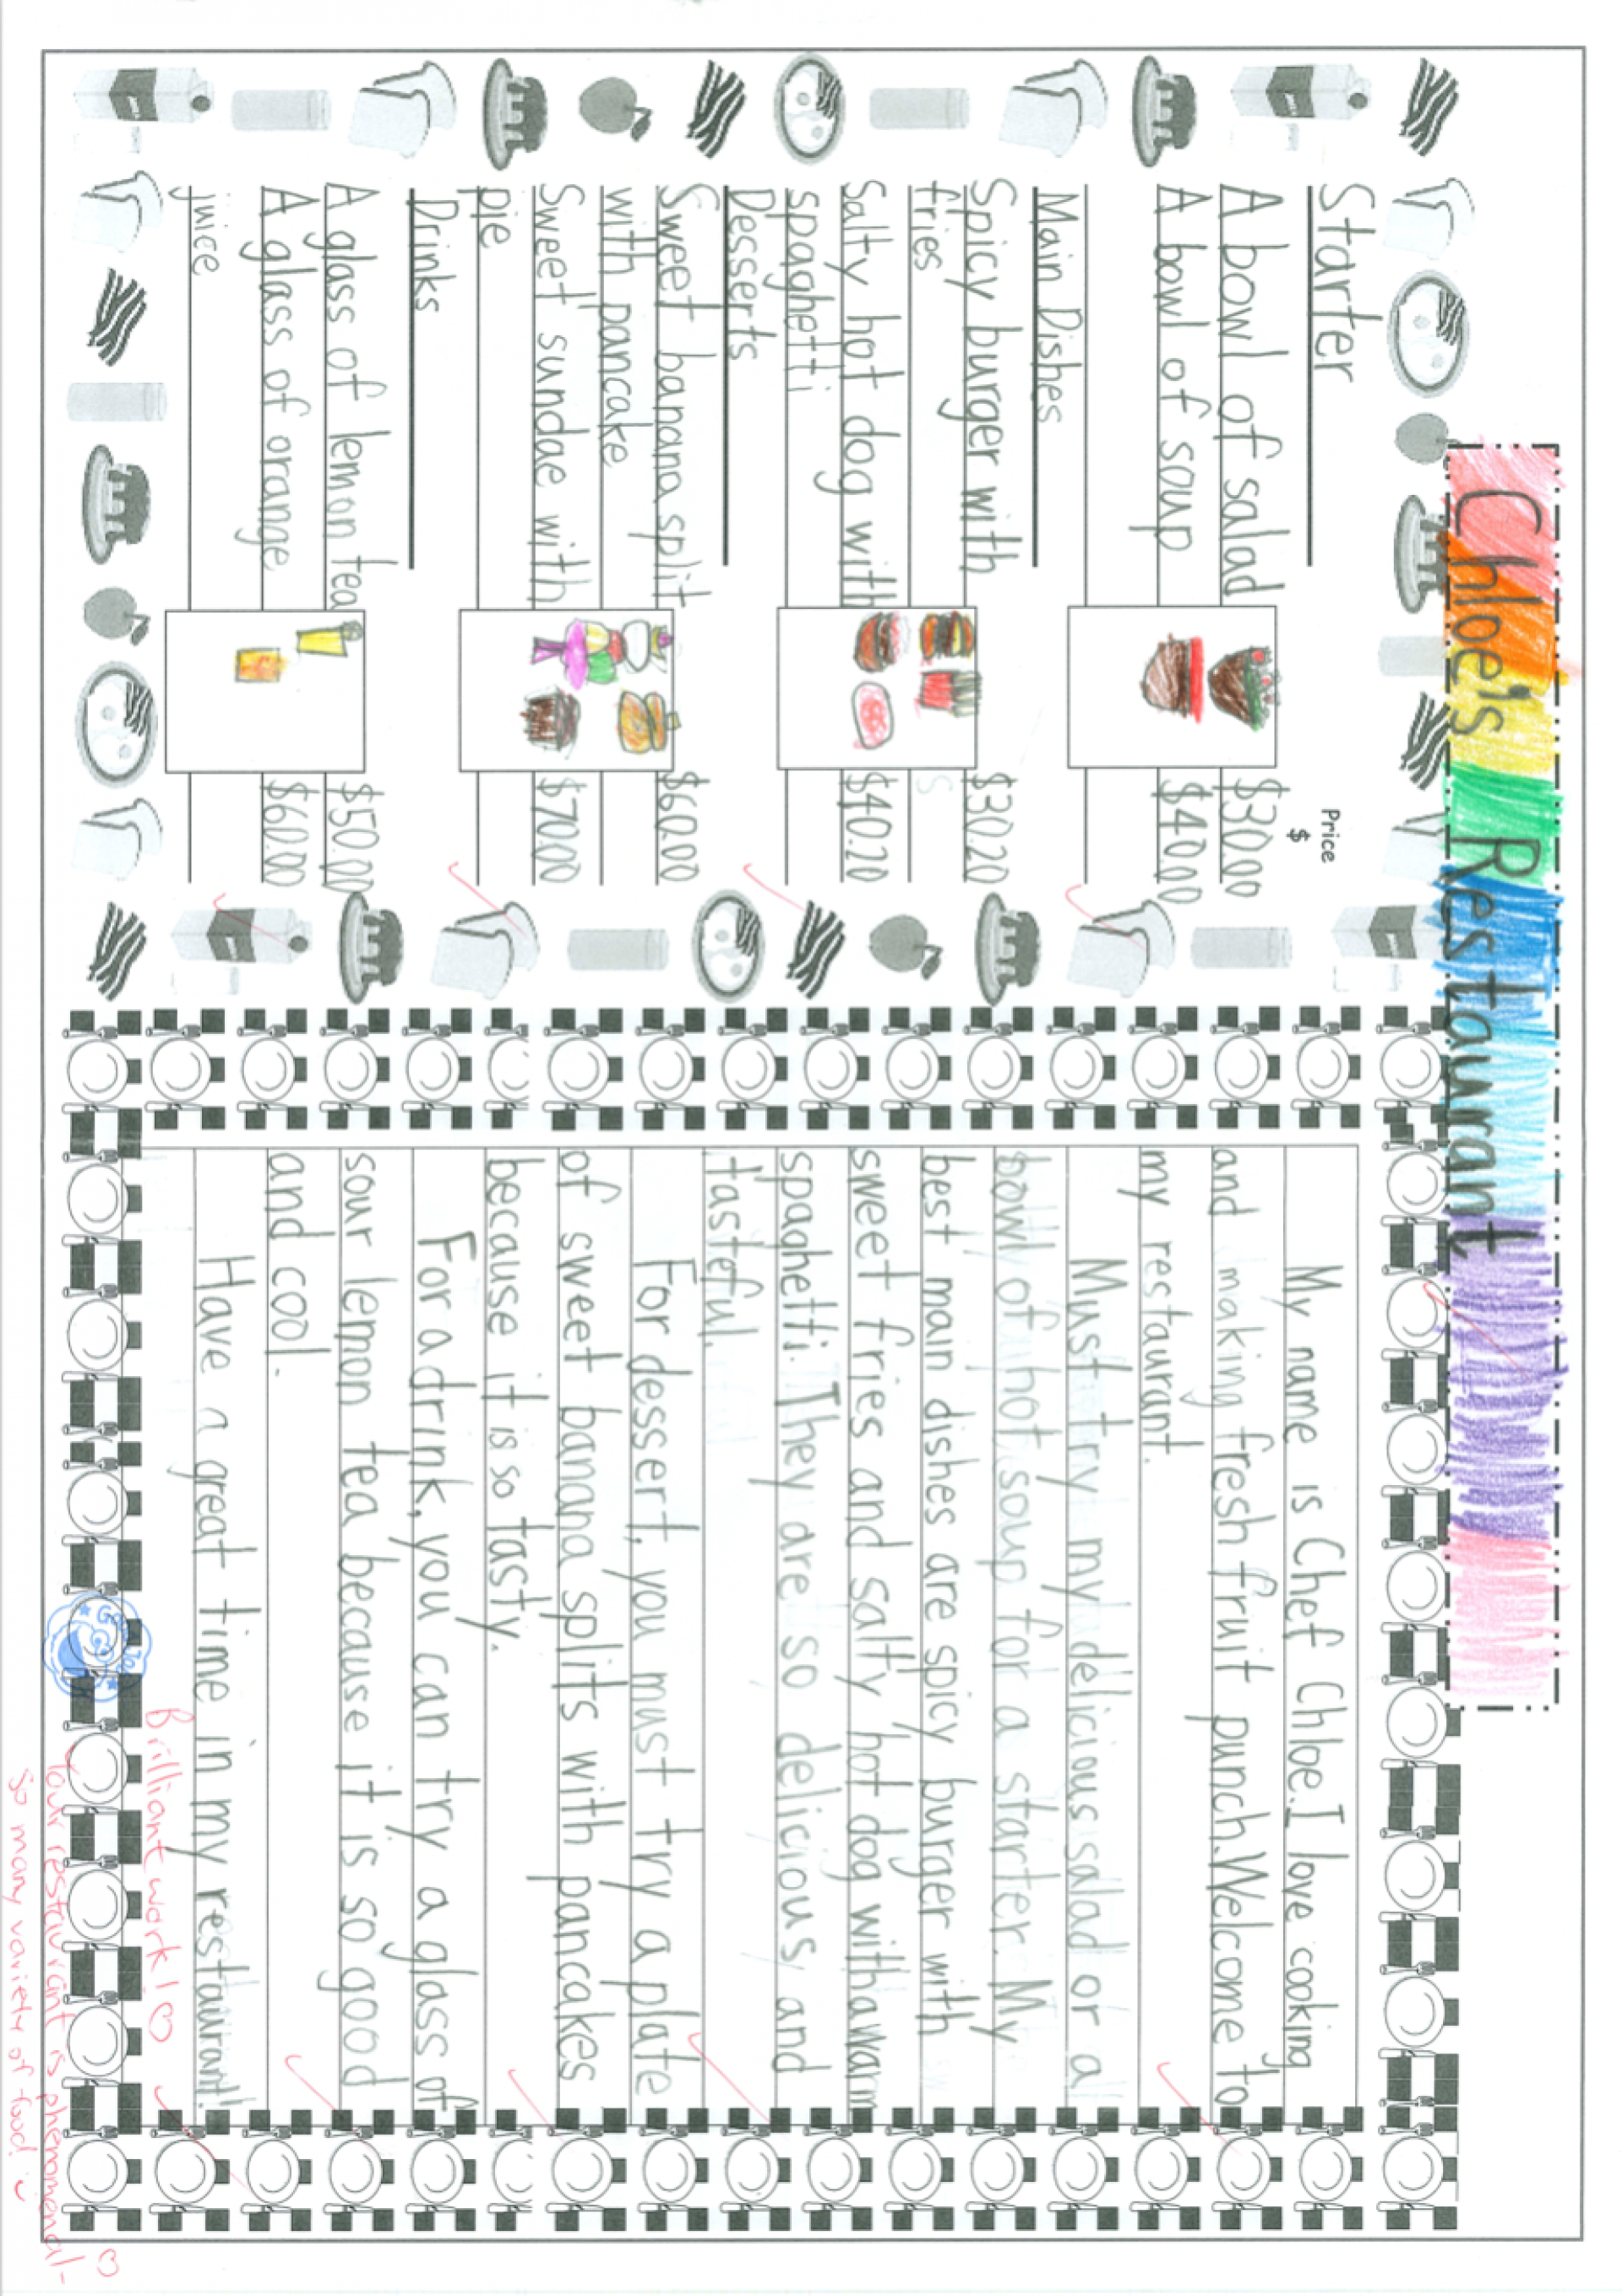 Chloe's Restaurant
Price
$
Starter
A bowl of salad $30.00
A bowl of soup $40.00
Main Dishes
Spicy burger with $30.20
fries
Salty hot dog with $40.20
spaghetti
Desserts
Sweet banana split $60.00
with pancake
Sweet sundae with $70.00
pie
Drinks
A glass of lemon tea $50.00
A glass of orange $60.00
juice
My name is Chef Chloe. I love cooking
and making fresh fruit punch. Welcome to
my restaurant.
Must try my delicious salad or a
bowl of hot soup for a starter. My
best main dishes are spicy burger with
sweet fries and salty hot dog with a warm
spaghetti. They are so delicious and
tasteful.
For dessert, you must try a plate
of sweet banana splits with pancakes
because it is so tasty.
For a drink, you can try a glass of
sour lemon tea because it is so good
and cool.
Have a great time in my restaurant!
Good Job
Brilliant work! ♡
Your restaurant is phenomenal- ♡
So many variety of food!